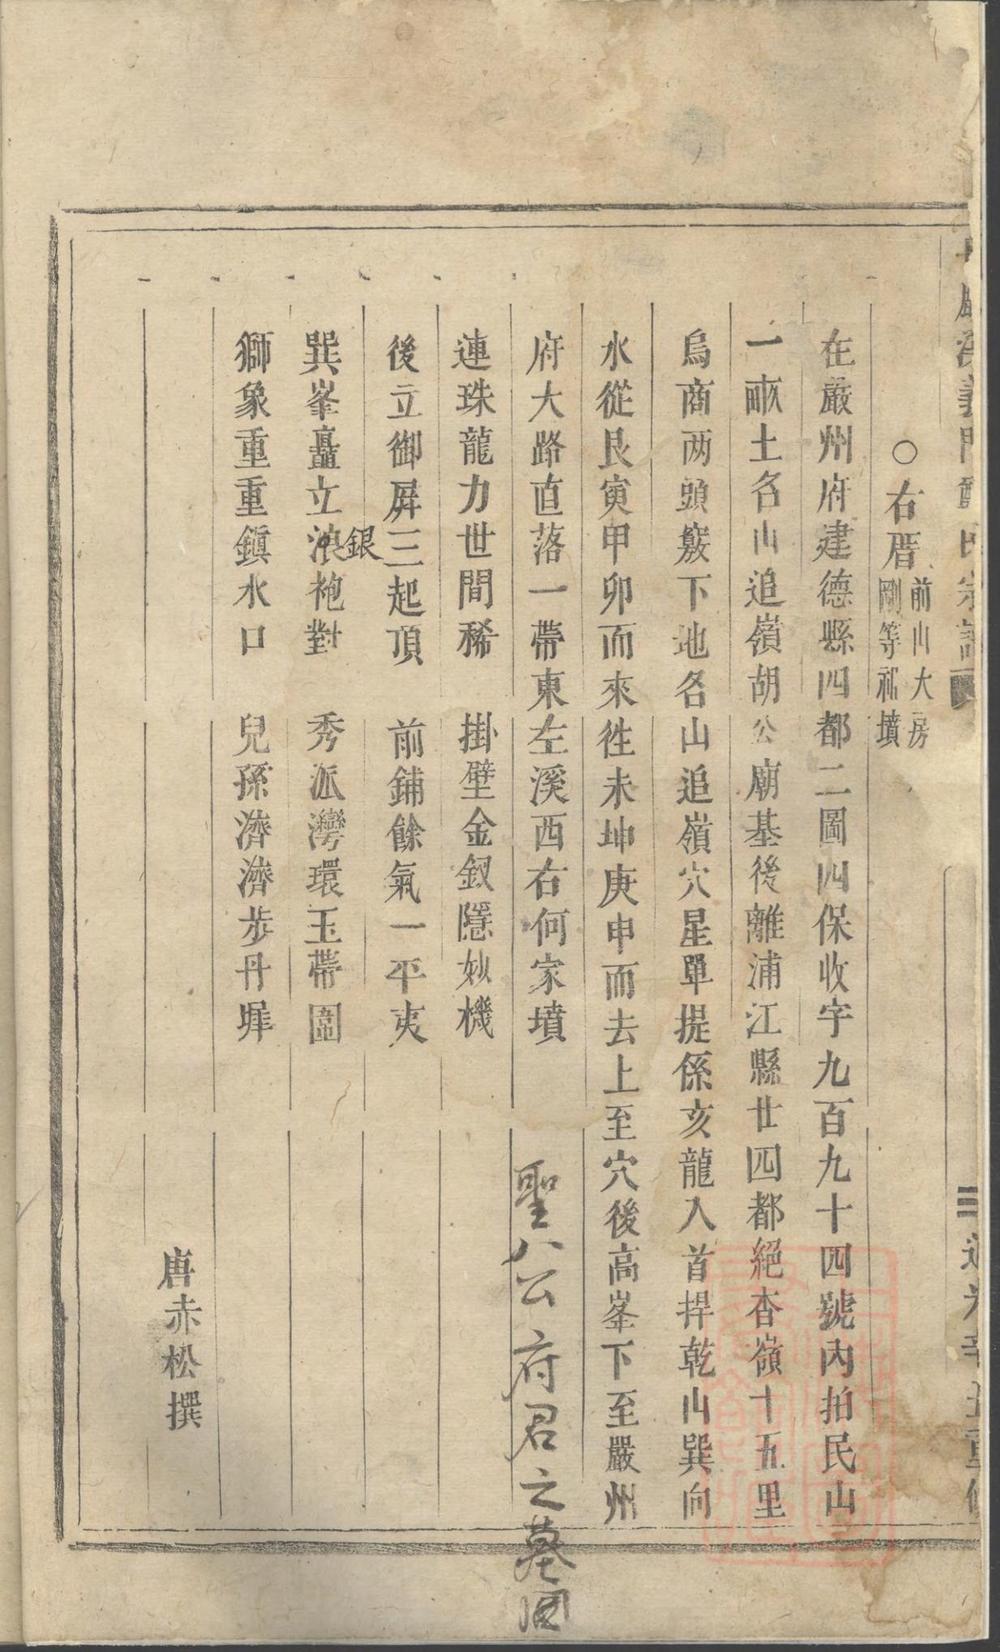 ○右厝前山大房剛等祀墳
在嚴州府建德縣四都二圖四保收字九百九十四號內拍民山
一畝土名山追嶺胡公廟基後離浦江縣廿四都絕杳嶺十五里
烏商两頭簸下地名山追嶺穴星單提係亥龍入首捍乾山巽向
水從艮寅甲卯而來徃未坤庚申而去上至穴後高峯下至嚴州
府大路直落一帶東左溪西右何家墳
聖八公府君之墓圖
連珠龍力世間稀 掛壁金釵隱妙機
後立御屏三起頂 前鋪餘氣一平夷
巽峯矗立浪袍對 秀派灣環玉帶圍
銀
獅象重重鎮水口 兒孫濟濟步丹墀
唐赤松撰